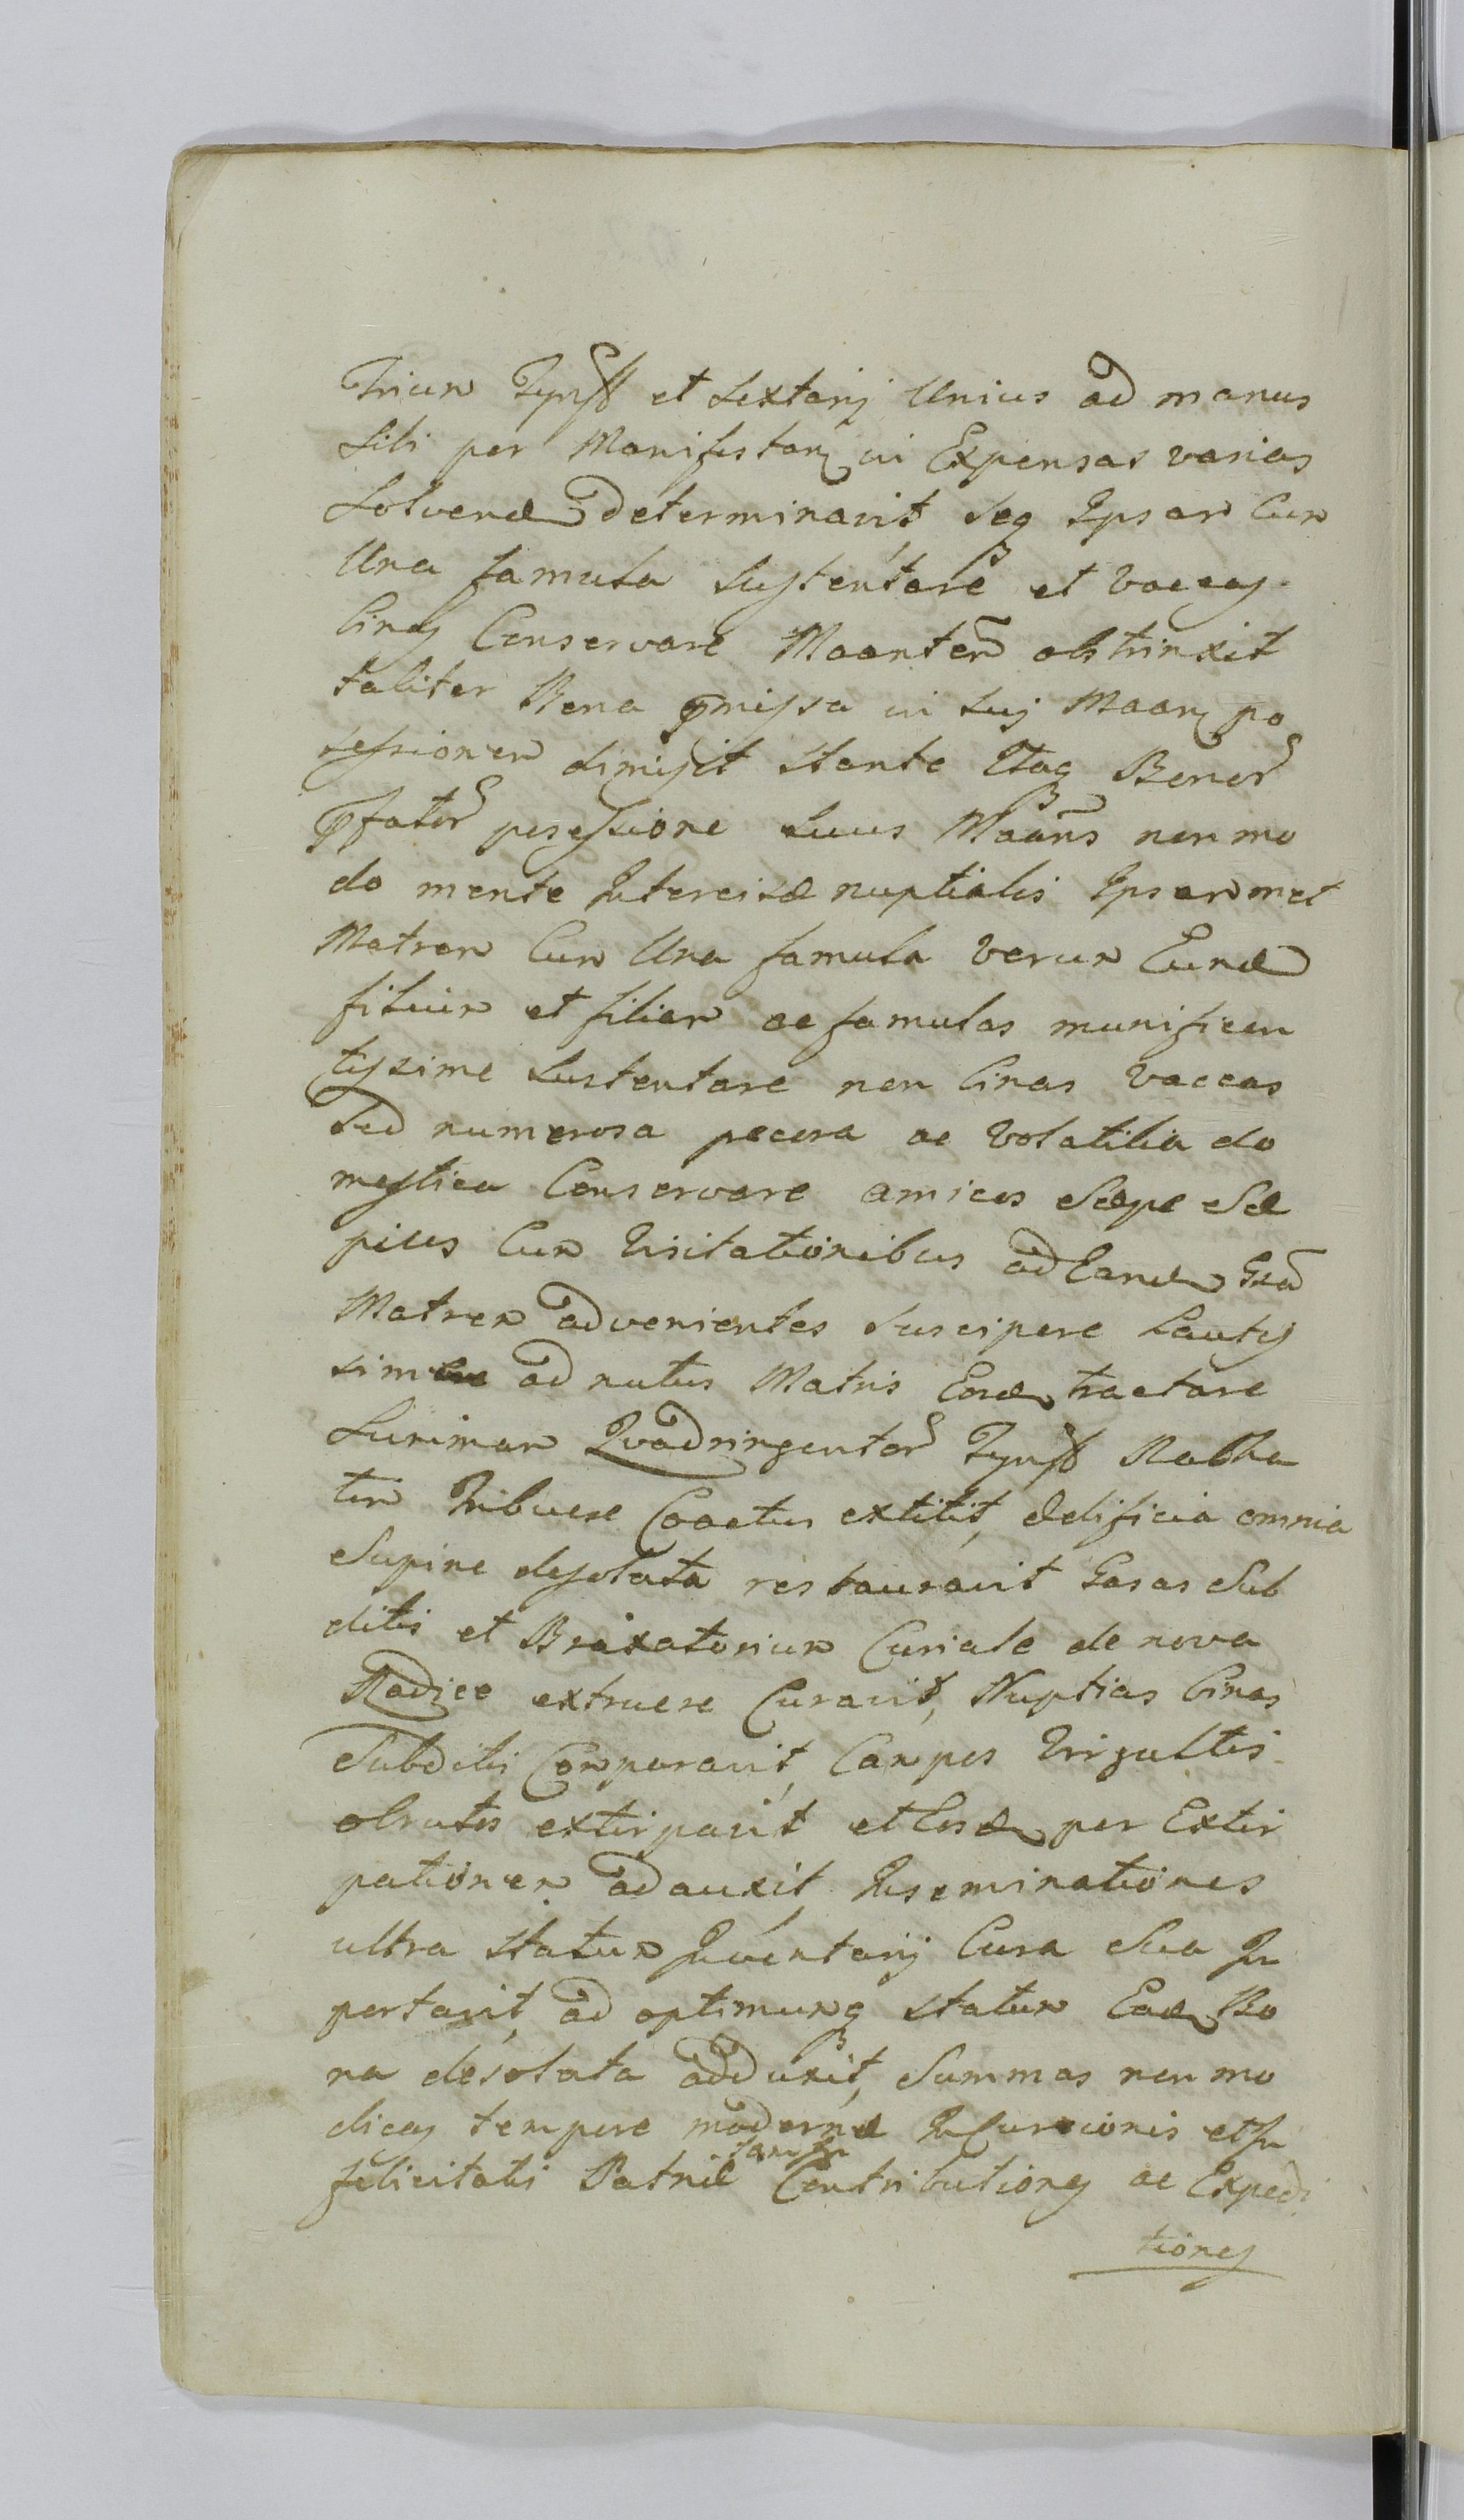 Trium Tynff et Sextarij Unius ad manus
Sibi per Manifestan in Expensas varias
Solvend Determinavit, Seq Ipsam Cum
Una famula Sustentare et vaccas
binas Conservare Maanten obstrinxit
taliter Bona pmissa in Sui Maan po
sessionem dimisit Stante Itaq Bonor
pfator posessione Suus Maans non mo
do mente Intercisæ nuptialis Ipsammet
Matrem Cum Una famula verum Eund
filium et filiam ac famulas munificen
tissime Sustentare non binas vaccas
Sed numerosa pecora ac volatilia do
mestica Conservare amicos Sæpe Sæ
pius Cum Visitationibus ad Eand
Matrem advenientes Suscipere Lautis
sime ad nutus Matris Eosd tractare
Summam Quadringentor Tynff Rabba
tim Tribuere Coactus extitit, Ædificia omnia
Supine desolata restauravit Casas Sub
ditis et Braxatorium Curiale de nova
Radice extruere Curavit, Nuptias binas
Subditis Comparavit, Campos Virgultis
obrutos extirpavit et Eosd per Extir
pationem adauxit, Inseminationes
ultra Statum Inventarij Cura Sua In
portavit, ad optimumq Statum Ead Bo
na desolata adduxit, Summas non mo
dicas tempore modernæ Incursionis et In
felicitatis Patriæ tam in Contributiones ac Expedi
tiones